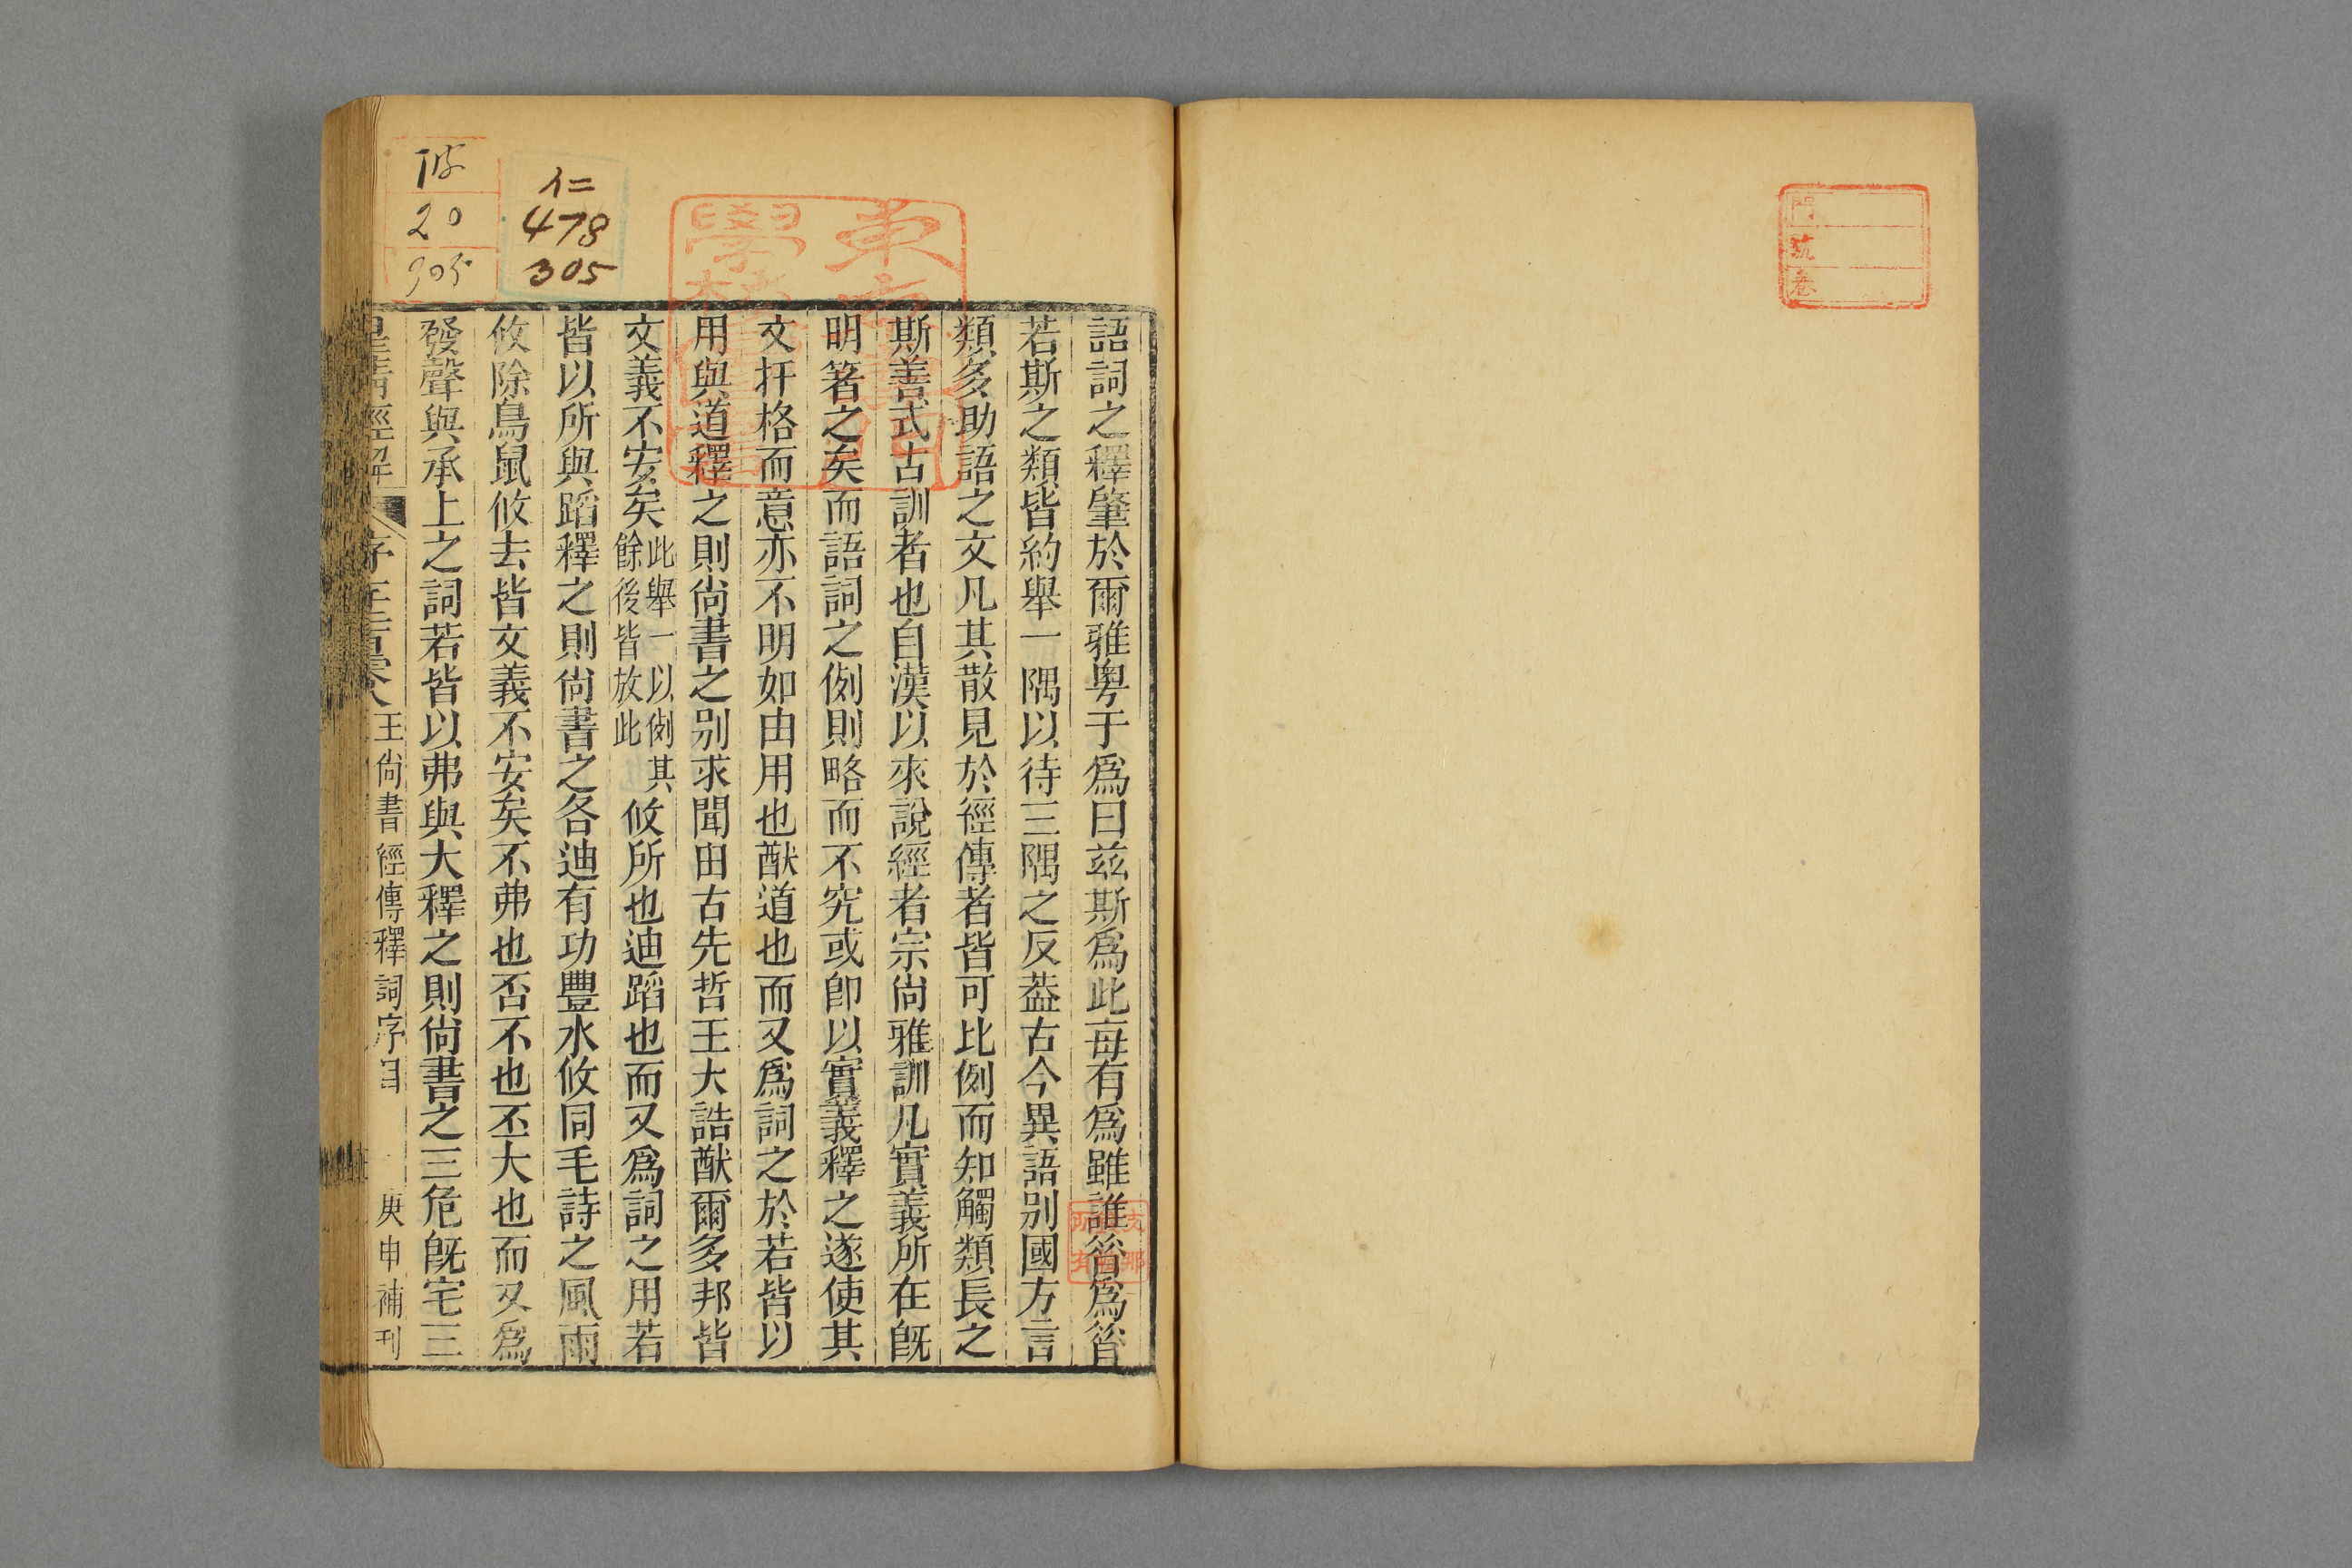 門
號
卷
語詞之釋肇於爾雅粤于爲曰兹斯爲此每有爲雖誰昝爲昝
若斯之類皆約舉一隅以待三隅之反葢古今異語别國方言
類多助語之文凡其散見於經傳者皆可比例而知觸類長之
斯善式古訓者也自漢以來說經者宗尚雅訓凡實義所在旣
明箸之矣而語詞之例則略而不究或卽以實義釋之遂使其
文扞格而意亦不明如由用也猷道也而又爲詞之於若皆以
用與道釋之則尚書之别求聞由古先哲王大誥猷爾多邦皆
文義不安矣此舉一以例其餘後皆放此攸所也迪蹈也而又爲詞之用若
皆以所與蹈釋之則尚書之各迪有功豐水攸同毛詩之風雨
攸除鳥鼠攸去皆文義不安矣不弗也否不也丕大也而又爲
發聲與承上之詞若皆以弗與大釋之則尚書之三危旣宅三
皇淸經解
王尚書經傳釋詞序
庚申補刊
イ二
478
305
20
905